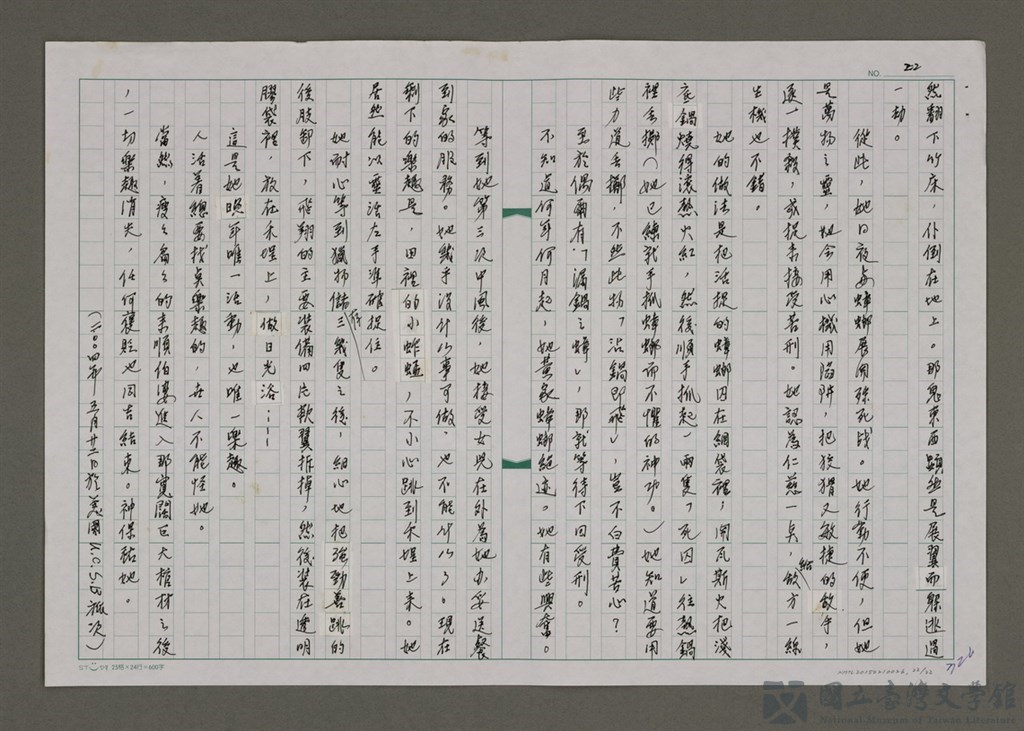 NO. 22
然翻下竹床，仆倒在地上。那鬼東西顯然是展翼而躲逃過
一劫。
從此，她日夜與蟑螂展開殊死战。她行動不便，但她
是萬物之靈，她会用心機用陷阱，把狡猾又敏捷的敵手，
逐一撲殺，或捉来接受苦刑。她認為仁慈一点，給敵方一線
生機也不錯。
她的做法是把活捉的蟑螂囚在網袋裡，開瓦斯火把淺
底鍋燒得滾熱火紅，然後順手抓起一兩隻「死囚」往熱鍋
裡丟擲（她已練就手抓蟑螂而不懼的神功。）她知道要用
些力道丟擲，不然此物「沾鍋即飛」，豈不白費苦心？
至於偶爾有「漏鍋之蟑」，那就等待下回受刑。
不知道何年何月起，她黃家蟑螂絕迹。她有些興奮。
等到她第三次中風後，她接受女兒在外為她办妥送餐
到家的服務。她幾乎沒什么事可做，也不能什么了。現在
剩下的樂趣是，田裡的小蚱蜢，不小心跳到禾埕上来。她
居然能以靈活左手準確捉住。
她耐心等到獵物儲存三幾隻之後，細心地把強勁善跳的
後肢卸下，飛翔的主要裝備四片軟翼拆掉，然後裝在透明
膠袋裡，放在禾埕上，做日光浴……
這是她晚年唯一活動，也唯一樂趣。
人活着總要找点樂趣的，世人不能怪她。
當然，瘦瘦扁扁的来順伯婆進入那寬闊巨大棺材之後
，一切樂趣消失，任何褒貶也同告結束。神保祐她。
（二〇〇四年五月廿二日於美国K.C.S.B旅次）
25格×24行=600字
726
國立臺灣文學館
National Museum of Taiwan Literature